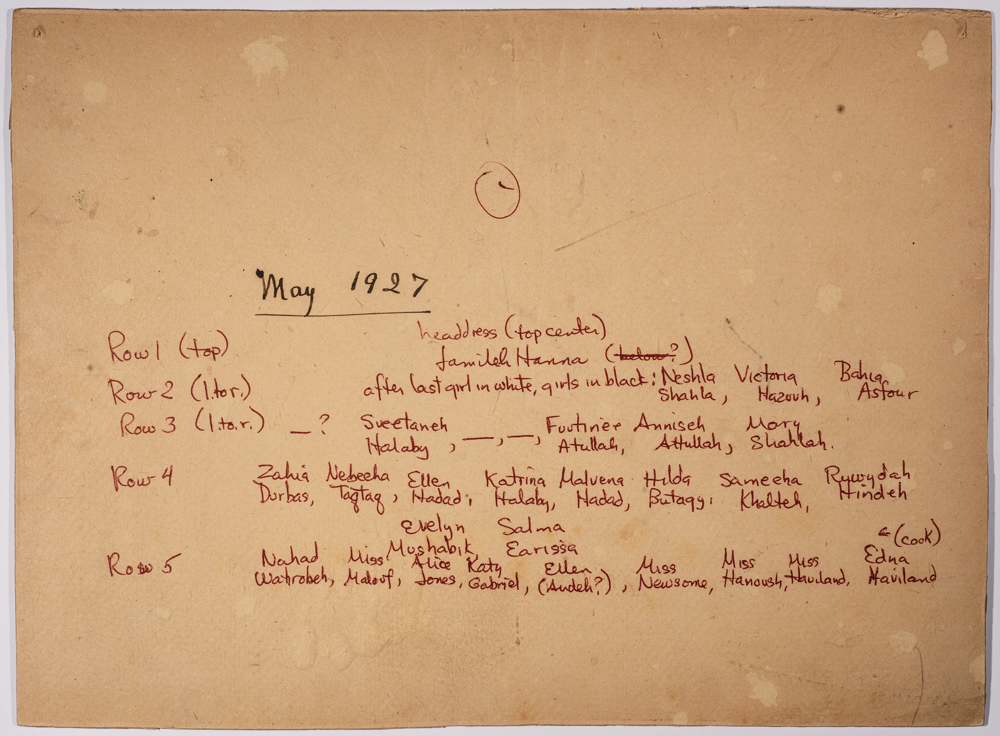 May 1927
headdress (top center)
Row 1 (top) Jamileh Hanna (below?)
Row 2 (l.to r.) after last girl in white, girls in black: Neshla Victoria Bahia
Shahla, Hazouh, Asfour
Row 3 (l.to.r.) —? Sveetaneh Futinee Anniseh Mary
Halaby, —, —, Atullah, Attullah, Shahlah.
Row 4 Zahia Nebeeha Ellen Katrina Malvena Hilda Sameeha Ruwydah
Durbas, Taqtaq, Hadad, Halaby, Hadad, Butaqy, Khalteh, Hindeh
Evelyn Salma
Mushabik, Earissa ← (cook)
Row 5 Nahad Miss Alice Katy Ellen Miss Miss Miss Edna
Watrobeh, Malouf, Jones, Gabriel, (Audeh?), Newsome, Hanoush, Haviland, Haviland